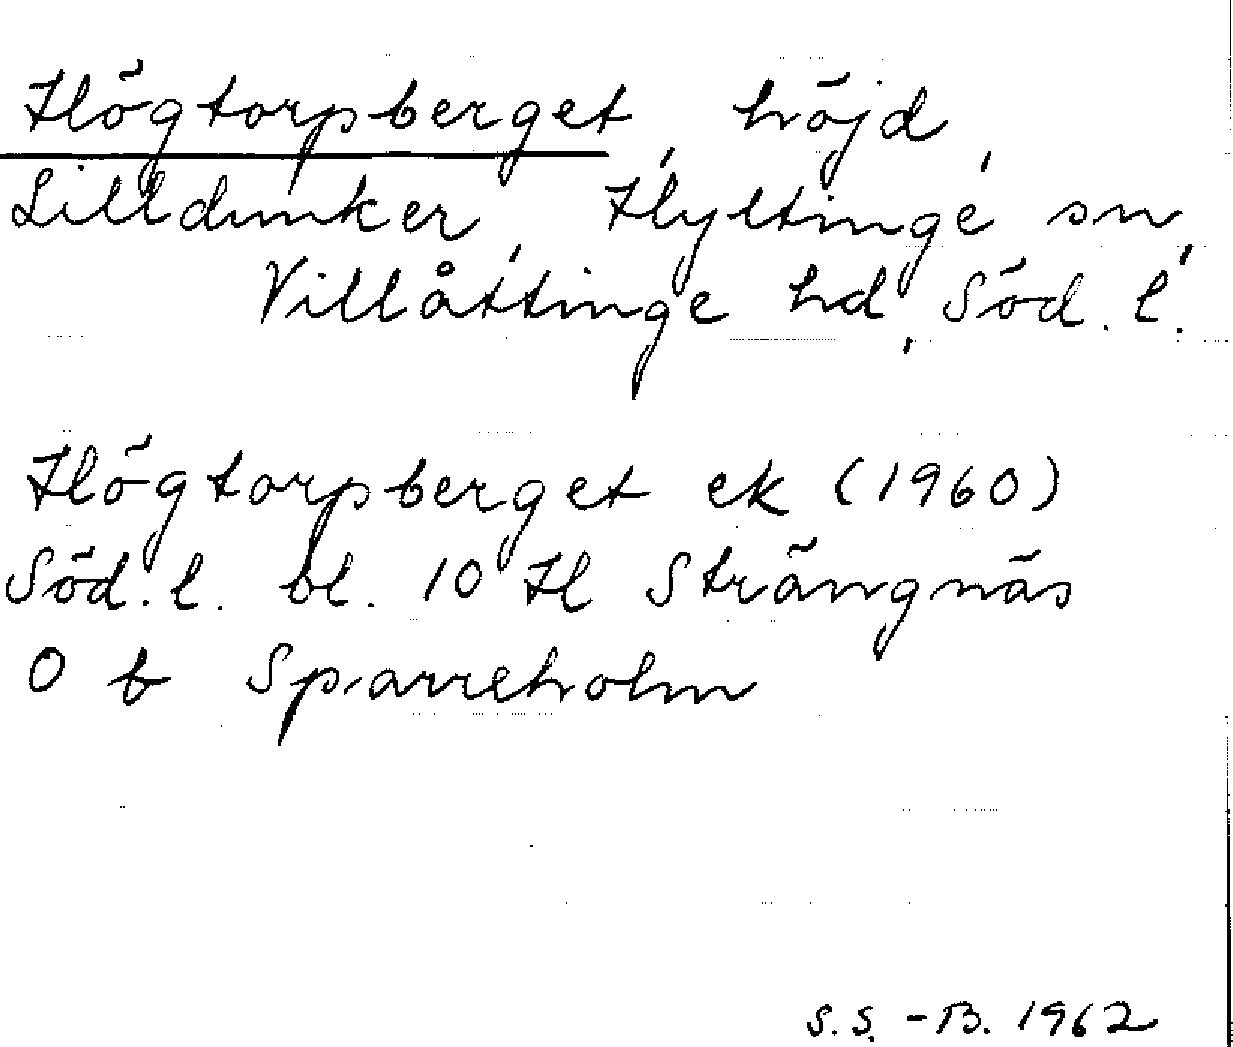 Högtorpberget, höjd,
Lilldunker, Hyltinge sn,
Villåttinge hd, Söd. l.
Högtorpberget ek (1960)
Söd. l. bl. 10 H Strängnäs
0 b Sparreholm
S.S. -B. 1962